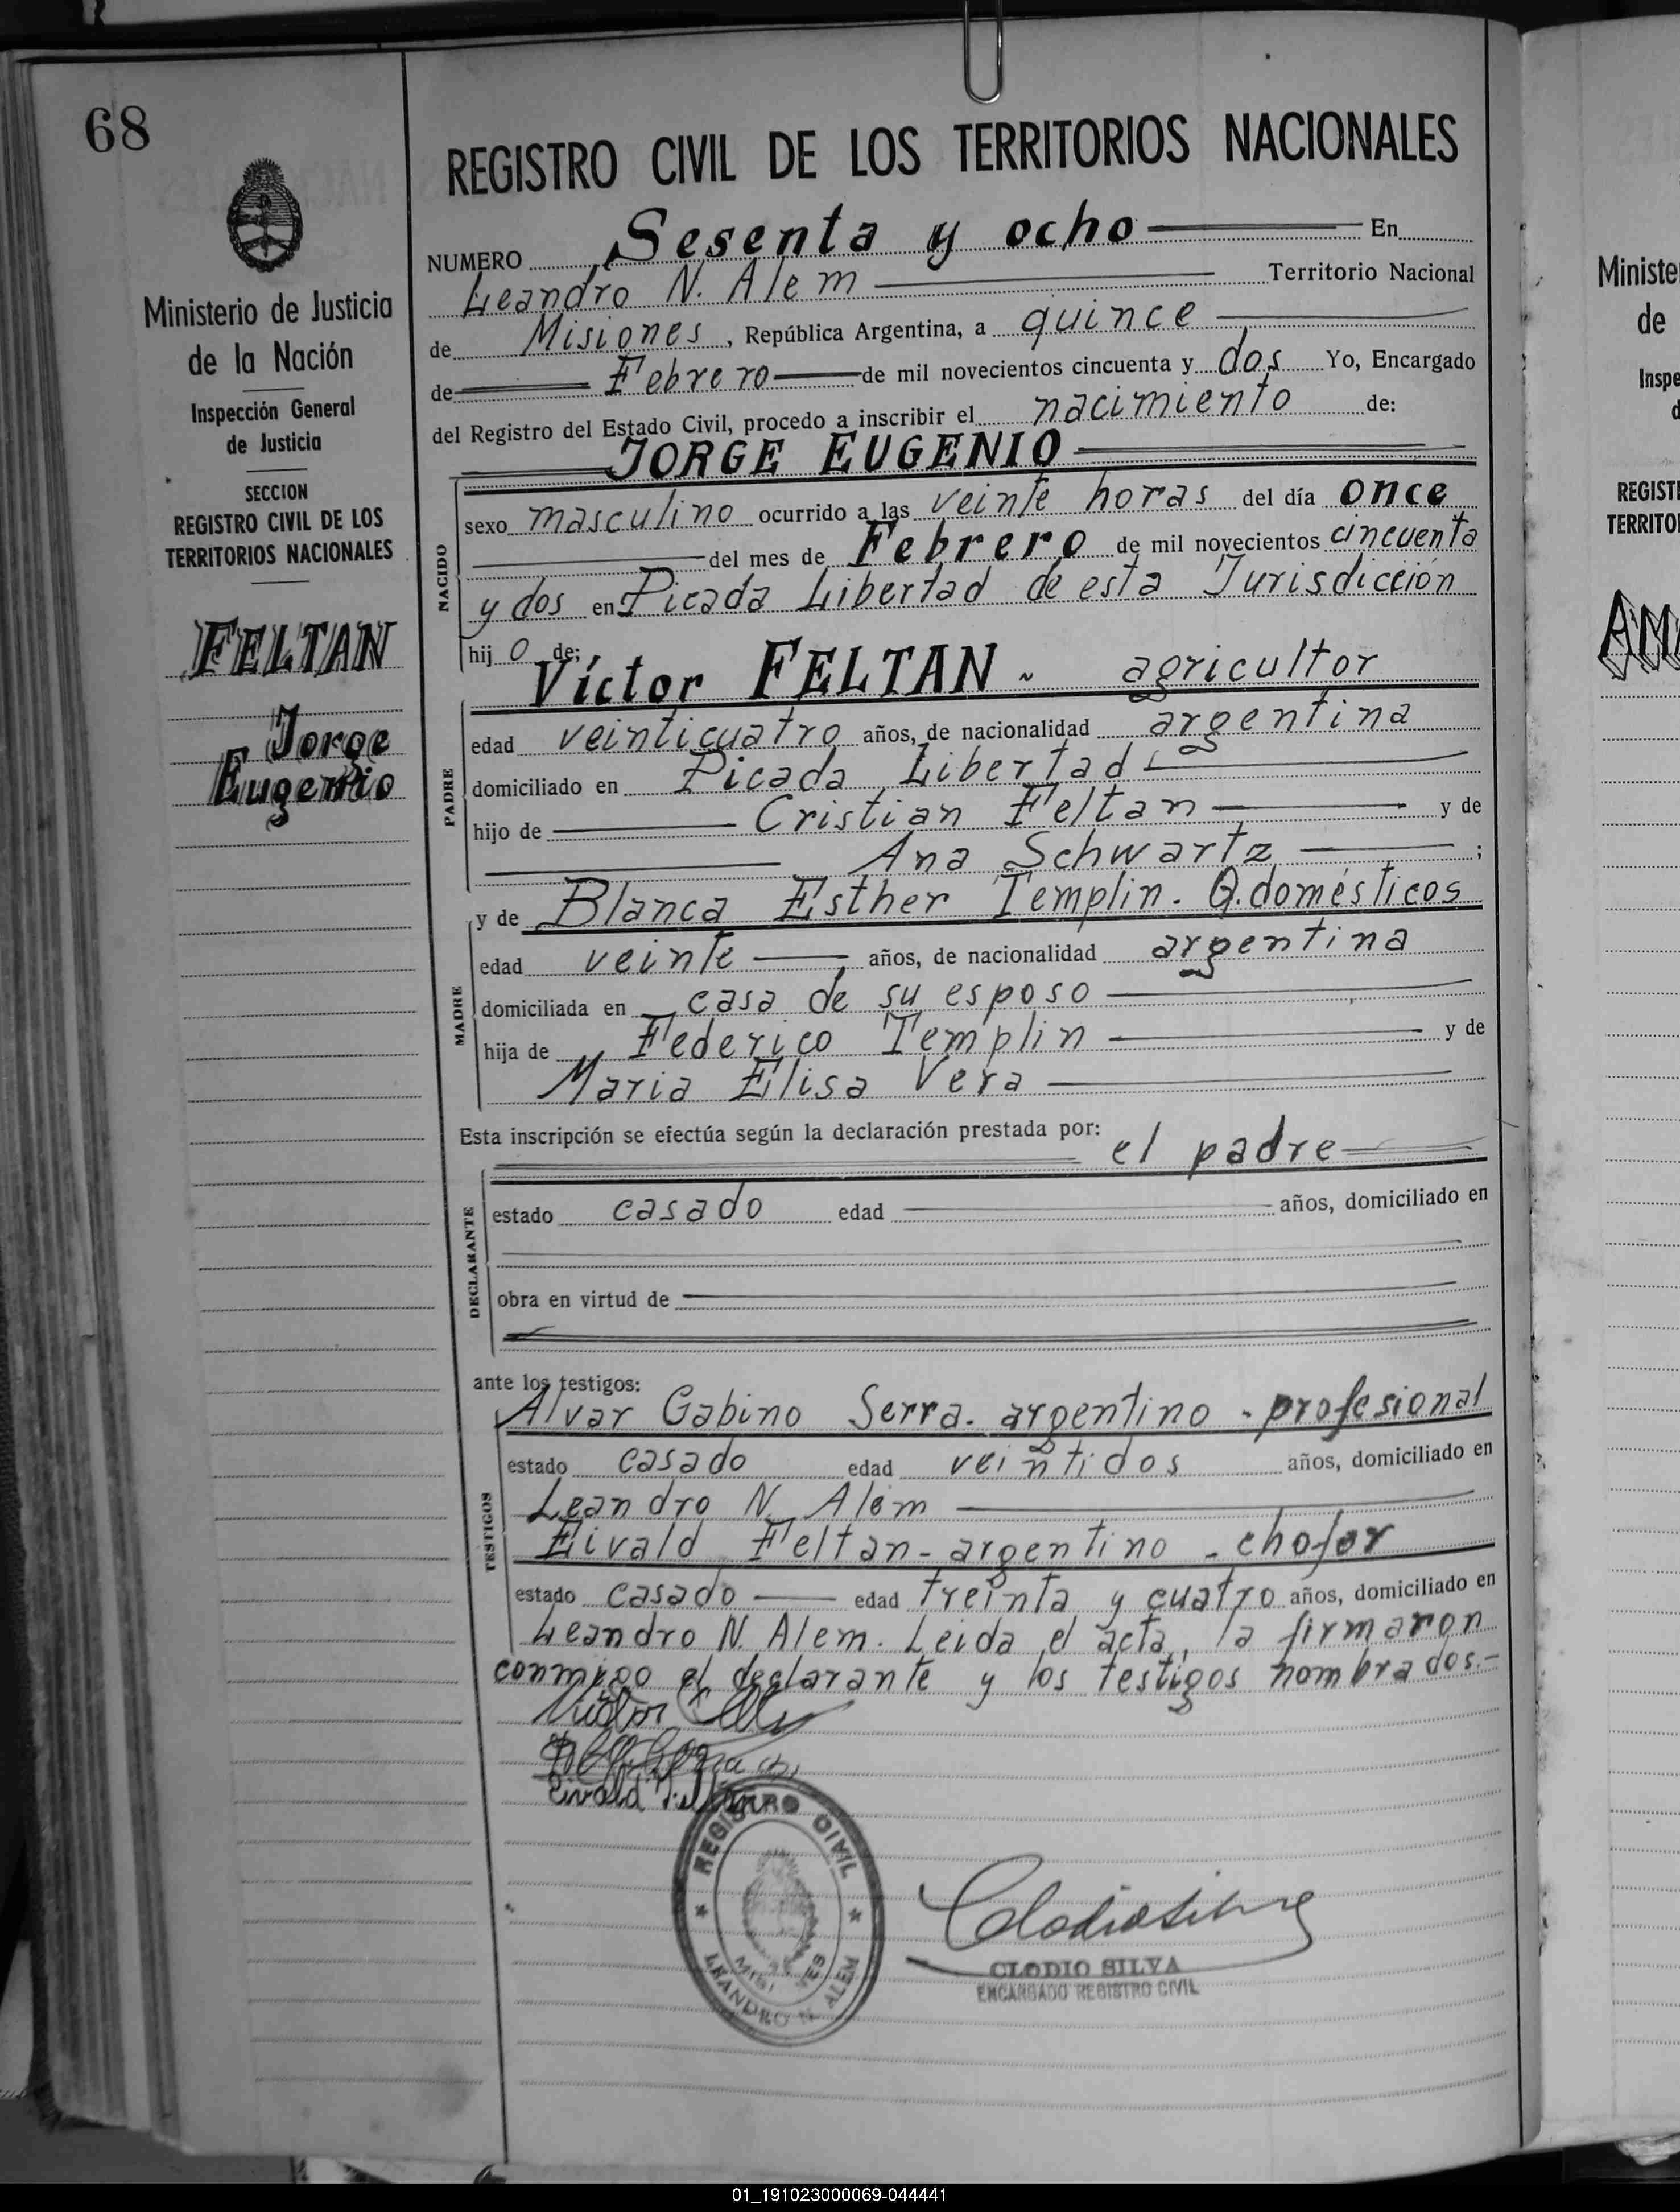 68
REGISTRO CIVIL DE LOS TERRITORIOS NACIONALES
NUMERO Sesenta y ocho En
Leandro N. Alem Territorio Nacional
de Misiones, República Argentina, a quince
de Febrero de mil novecientos cincuenta y dos Yo, Encargado
del Registro del Estado Civil, procedo a inscribir el nacimiento de:
JORGE EUGENIO
NACIDO
sexo masculino ocurrido a las veinte horas del día once
del mes de Febrero de mil novecientos cincuenta
y dos en Picada Libertad de esta Jurisdicción
hij o de:
Víctor FELTAN - agricultor
PADRE
edad veinticuatro años, de nacionalidad argentina
domiciliado en Picada Libertad
hijo de Cristian Feltan y de
Ana Schwartz ;
y de Blanca Esther Templin. Q. domésticos
MADRE
edad veinte años, de nacionalidad argentina
domiciliada en casa de su esposo
hija de Federico Templin y de
Maria Elisa Vera
Esta inscripción se efectúa según la declaración prestada por:
el padre
DECLARANTE
estado casado edad años, domiciliado en
obra en virtud de
ante los testigos:
Alvar Gabino Serra. argentino - profesional
TESTIGOS
estado casado edad veintidos años, domiciliado en
Leandro N. Alem
Eivald Feltan - argentino - chofer
estado casado edad treinta y cuatro años, domiciliado en
Leandro N. Alem. Leida el acta, la firmaron
conmigo el declarante y los testigos nombrados.-
Victor
Eivald Feltan
REGISTRO CIVIL
LEANDRO N. ALEM
CLODIO SILVA
ENCARGADO REGISTRO CIVIL
Ministerio de Justicia
de la Nación
Inspección General
de Justicia
SECCION
REGISTRO CIVIL DE LOS
TERRITORIOS NACIONALES
FELTAN
Jorge
Eugenio
Ministe
de
Inspe
d
REGIST
TERRITO
AM
01_191023000069-044441